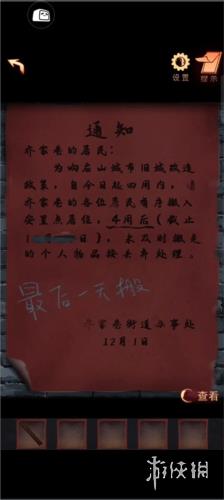 设置
提示
通知
齐家巷的居民：
为响应右山城市旧城改造
政策，自今日起四周内，请
齐家巷的各位居民有序搬入
安置点居住，4周后（截止
1 日），未及时搬走
的个人物品按丢弃处理。
最后一天搬
齐家巷街道办事处
12月1日
查看
游侠网